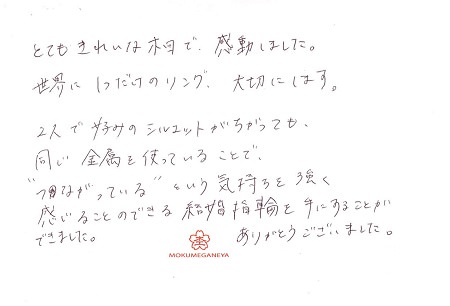 とてもきれいな木目で、感動しました。
世界に1つだけのリング、大切にします。
2人で好みのシルエットがちがっても、
同じ金属を使っていることで、
“つながっている”という気持ちを強く
感じることのできる結婚指輪を手にすることが
できました。 ありがとうございました。
MOKUMEGANEYA